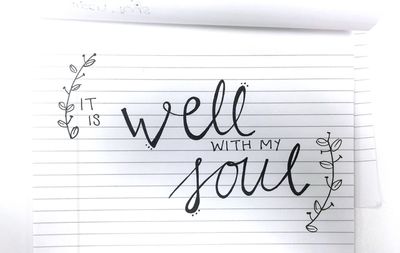 IT
IS
well
WITH MY
soul